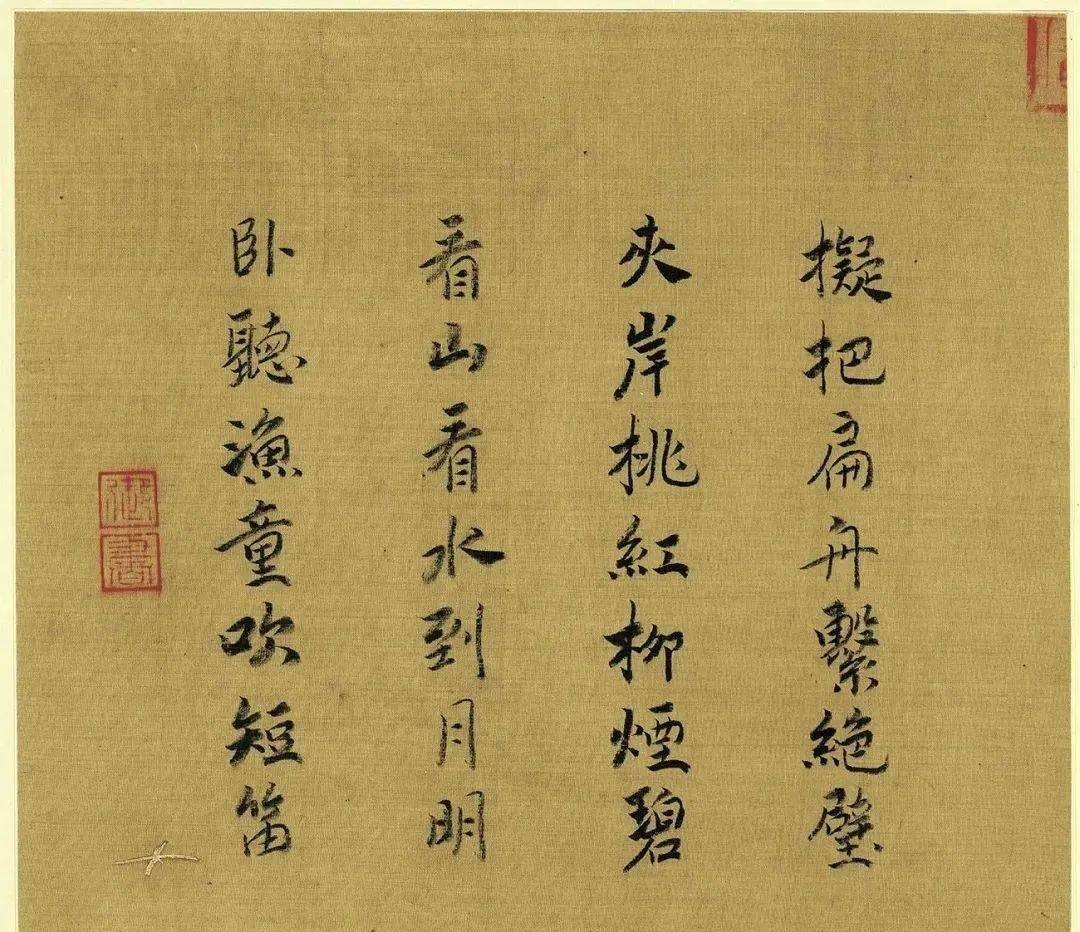 擬把扁舟繫絕壁
夾岸桃紅柳煙碧
看山看水到月明
卧聽漁童吹短笛
御書